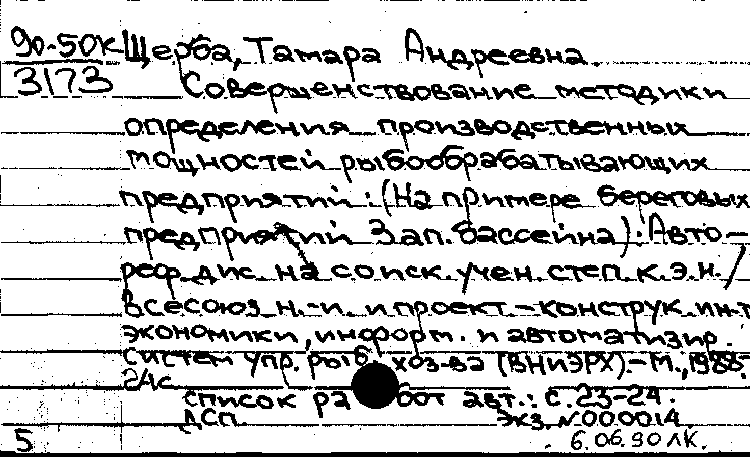 90-50к Щерба, Тамара Андреевна.
3173 Совершенствование методики
определения производственных
мощностей рыбообрабатывающих
предприятий : (На примере береговых
предприятий Зап. бассейна) : Авто-
реф. дис. на соиск. учен. степ. к.э.н. /
Всесоюз. н.-и. и проект.-конструк. ин-т
экономики, информ. и автоматизир.
систем упр. рыб. хоз-ва (ВНИЭРХ).- М., 1988.
24с
список работ авт.: с.23-24.
ДСП. Экз. №000014.
5 6.06.90 ЛК.